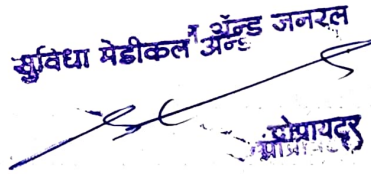 सुविधा मेडीकल अॅन्ड जनरल
प्रोप्रायटर